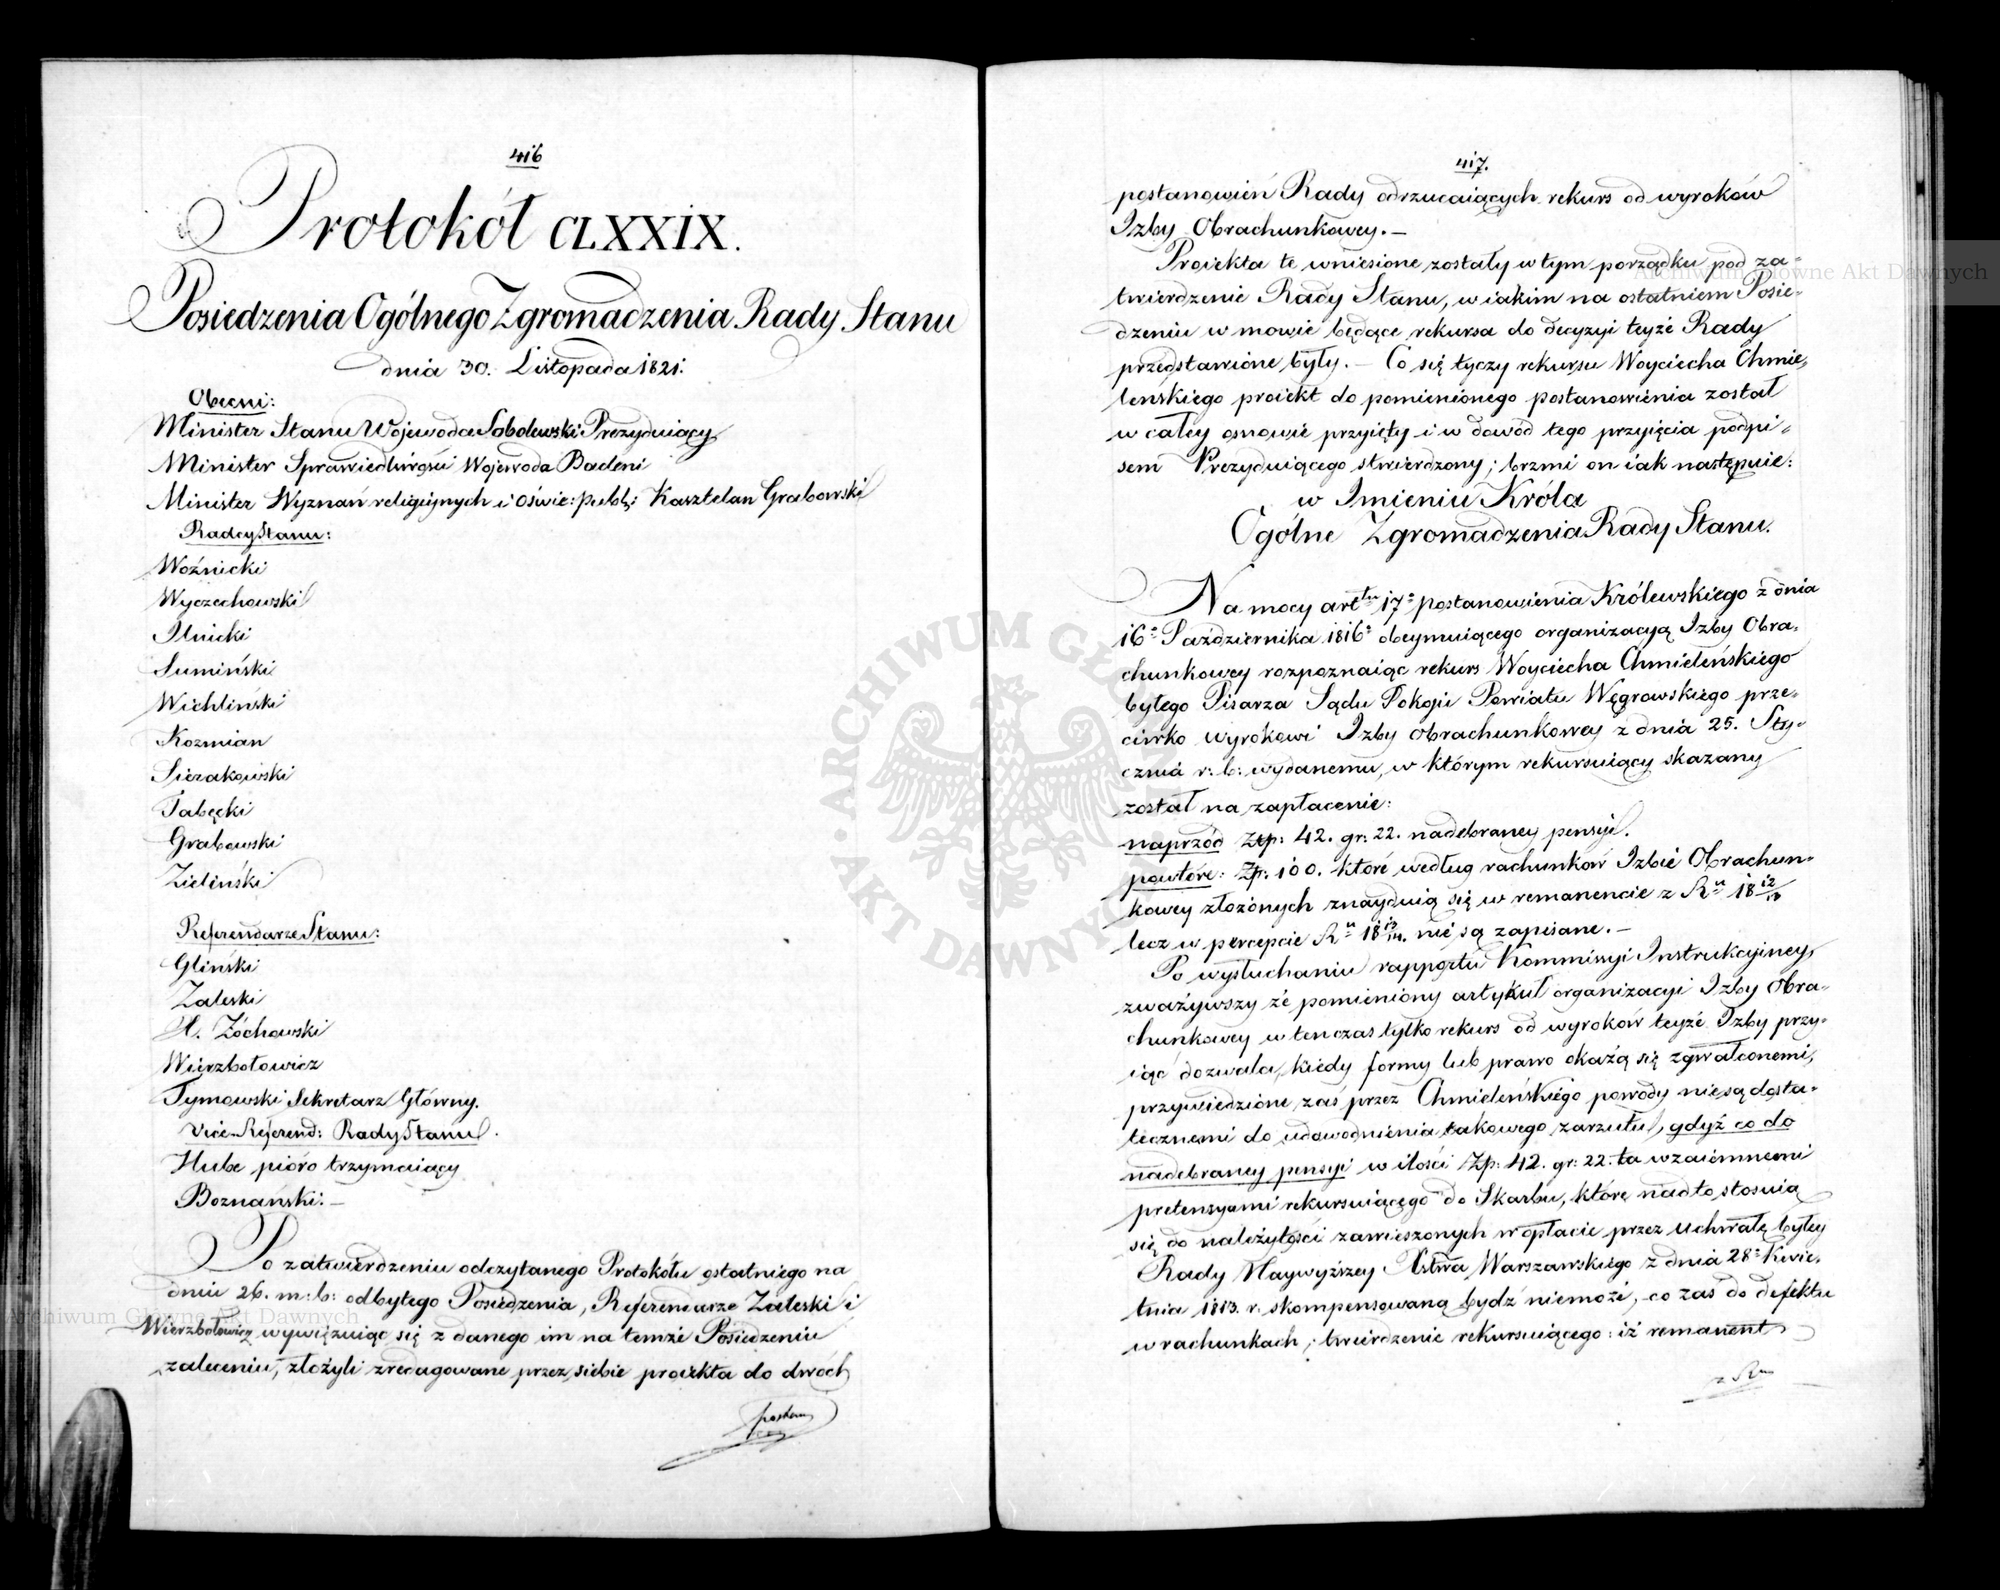 416
Protokół CLXXIX.
Posiedzenia Ogólnego Zgromadzenia Rady Stanu
dnia 30. Listopada 1821.
Obecni:
Minister Stanu Wojewoda Sobolewski Prezyduiący
Minister Sprawiedliwości Wojewoda Badeni
Minister Wyznań religijnych i oświe: publ: Kasztelan Grabowski
Radcy Stanu:
Woźnicki
Wyczechowski
Ilnicki
Sumiński
Wichliński
Kozmian
Sierakowski
Tabęcki
Grabowski
Zieliński
Referendarze Stanu:
Gliński
Zaleski
Żóchowski
Wierzbołowicz
Tymowski Sekretarz Główny.
Vice-Referend: Rady Stanu.
Hube pióro trzymaiący
Boznański: –
Po zatwierdzeniu odczytanego Protokółu ostatniego na
dniu 26. m: b: odbytego Posiedzenia, Referendarze Zaleski i
Wierzbołowicz wywięzuiąc się z danego im na temże Posiedzeniu
zaleceniu, złożyli zredagowane przez siebie proiekta do dwóch
417.
postanowień Rady odrzucaiących rekurs od wyroków
Izby Obrachunkowey. –
Proiekta te wniesione zostały w tym porządku pod za-
twierdzenie Rady Stanu, w iakim na ostatniem Posie-
dzeniu w mowie będące rekursa do decyzyi teyże Rady
przedstawione były. – Co się tyczy rekursu Woyciecha Chmie-
leńskiego proiekt do pomienionego postanowienia został
w całey osnowie przyięty i w dowód tego przyięcia podpi-
sem Prezyduiącego stwierdzony; brzmi on iak następuie:
w Imieniu Króla
Ogólne Zgromadzenia Rady Stanu.
Na mocy art​łu 17° postanowienia Królewskiego z dnia
16° Października 1816° obeymuiącego organizacyą Izby Obra-
chunkowey rozpoznaiąc rekurs Woyciecha Chmieleńskiego
byłego Pisarza Sądu Pokoju Powiatu Węgrowskiego prze-
ciwko wyrokowi Izby Obrachunkowey z dnia 25. Sty-
cznia r: b: wydanemu, w którym rekursuiący skazany
został na zapłacenie:
naprzód Ztp: 42. gr: 22. nadebraney pensyi.
powtóre: Zp: 100. które według rachunków Izbie Obrachun-
kowey złożonych znayduią się w remanencie z Ru 18 12/13
lecz w percepcie Ru 18 13/14. nie są zapisane. –
Po wysłuchaniu rapportu Kommissyi Instrukcyiney,
zważywszy że pomieniony artykuł organizacyi Izby Obra-
chunkowey w tenczas tylko rekurs od wyroków teyże Izby przy-
iąć dozwala, kiedy formy lub prawo okażą się zgwałconemi,
przywiedzione zaś przez Chmieleńskiego powody nie są dosta-
tecznemi do udowodnienia takowego zarzutu, gdyż co do
nadebraney pensyi w ilości Zp: 42. gr: 22. ta wzaiemnemi
pretensyami rekursuiącego do Skarbu, które nadto stosuią
się do należytości zawieszonych w opłacie przez Uchwałę byłey
Rady Naywyższey Xstwa Warszawskiego z dnia 28° Kwie-
tnia 1813. r. skompensowaną bydź niemoże, co zaś do defektu
w rachunkach, twierdzenie rekursuiącego: iż remanent
z Ru